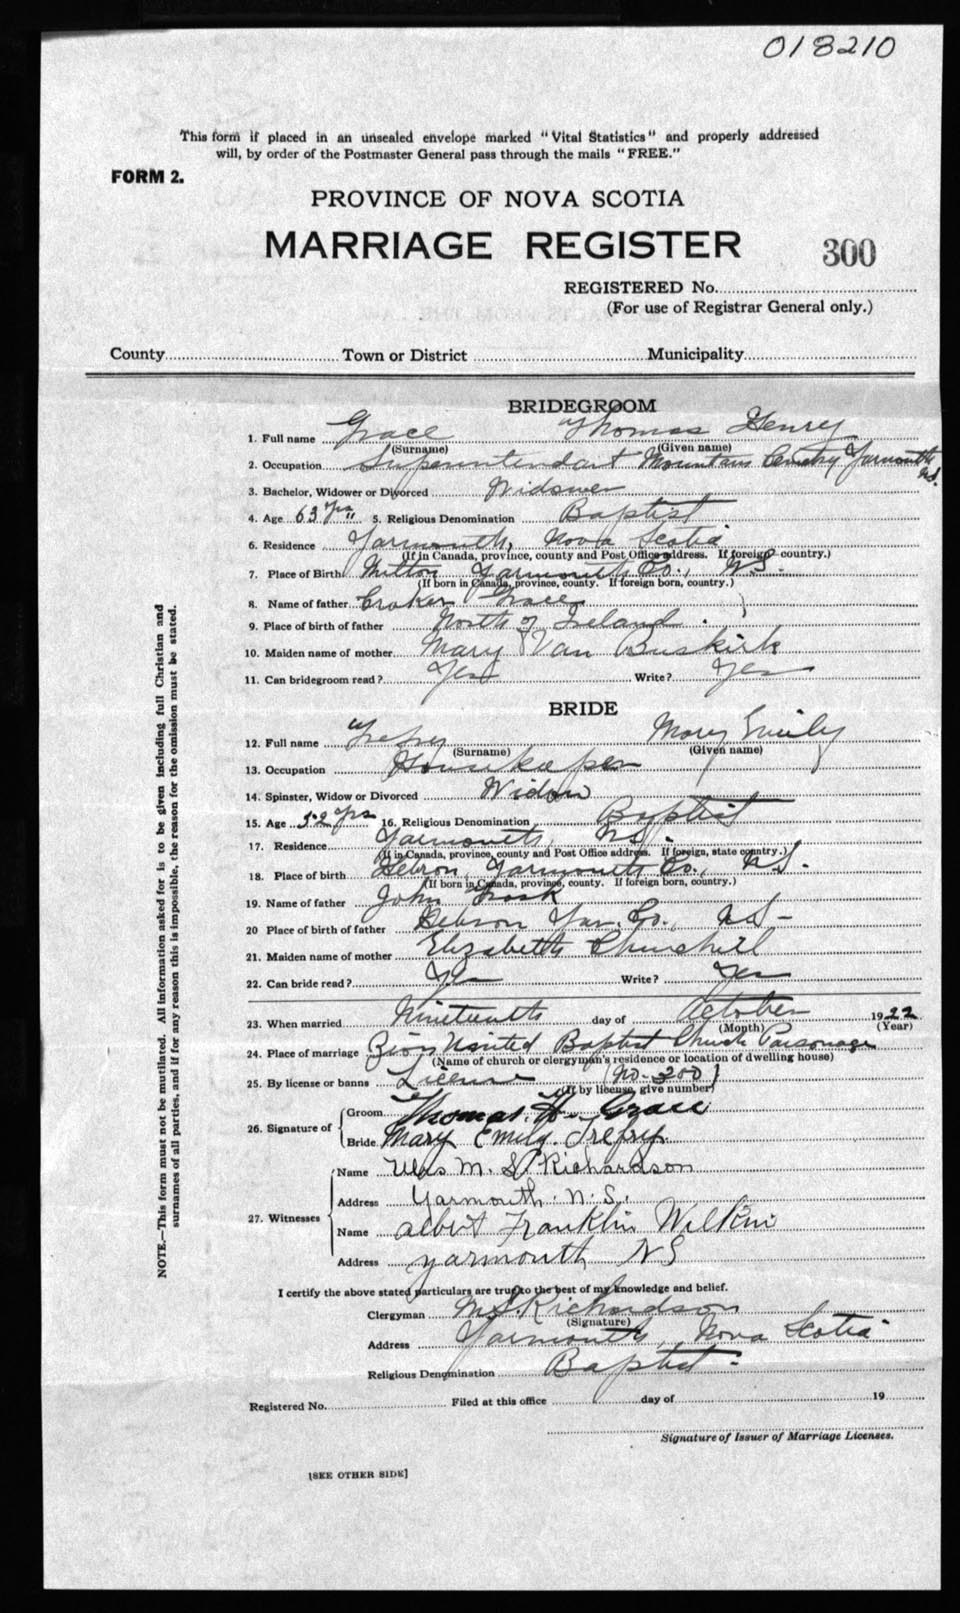 018210
This form if placed in an unsealed envelope marked "Vital Statistics" and properly addressed
will, by order of the Postmaster General pass through the mails "FREE."
FORM 2.
PROVINCE OF NOVA SCOTIA
MARRIAGE REGISTER 300
REGISTERED No.
(For use of Registrar General only.)
County Town or District Municipality
BRIDEGROOM
1. Full name Grace Thomas Henry
(Surname) (Given name)
2. Occupation Superintendant Mountain Cemetry Yarmouth N.S.
3. Bachelor, Widower or Divorced Widower
4. Age 63 yrs 5. Religious Denomination Baptist
6. Residence Yarmouth, Nova Scotia
(If in Canada, province, county and Post Office address. If foreign country.)
7. Place of Birth Milton Yarmouth Co., N.S.
(If born in Canada, province, county. If foreign born, country.)
8. Name of father Croker Grace
9. Place of birth of father North of Ireland.
10. Maiden name of mother Mary Van Buskirk
11. Can bridegroom read? Yes Write? Yes
BRIDE
12. Full name Trefry Mary Emily
(Surname) (Given name)
13. Occupation Housekeeper
14. Spinster, Widow or Divorced Widow
15. Age 52 yrs 16. Religious Denomination Baptist
17. Residence Yarmouth, N.S.
(If in Canada, province, county and Post Office address. If foreign, state country.)
18. Place of birth Hebron, Yarmouth Co., N.S.
(If born in Canada, province, county. If foreign born, country.)
19. Name of father John Trask
20 Place of birth of father Hebron Yar. Co., N.S-
21. Maiden name of mother Elizabeth Churchill
22. Can bride read? Yes Write? Yes
23. When married Nineteenth day of October 1922
(Month) (Year)
24. Place of marriage Zion United Baptist Church Parsonage
(Name of church or clergyman's residence or location of dwelling house)
25. By license or banns License (No. 300)
(If by license, give number)
26. Signature of Groom Thomas. H. Grace
Bride Mary Emily. Trefry.
27. Witnesses Name Mrs M. S. Richardson
Address Yarmouth. N. S.
Name Albert Franklin
Address Yarmouth NS
I certify the above stated particulars are true to the best of my knowledge and belief.
Clergyman M. S. Richardson
(Signature)
Address Yarmouth, Nova Scotia
Religious Denomination Baptist-
Registered No. Filed at this office day of 19
Signature of Issuer of Marriage Licenses.
[SEE OTHER SIDE]
NOTE.—This form must not be mutilated. All information asked for is to be given including full Christian and
surnames of all parties, and if for any reason this is impossible, the reason for the omission must be stated.